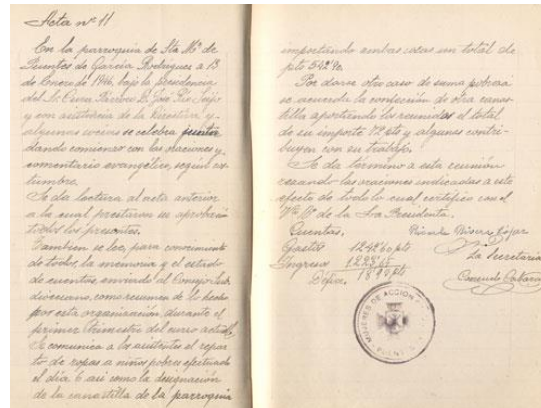 Acta nº 11
En la parroquia de Sta Mª de
Puentes de García Rodríguez a 13
de Enero de 1946, bajo la presidencia
del Sr. Cura Párroco D. José Pío Seijo
y con asistencia de la Directiva y
algunas socias se celebra junta
dando comienzo con las oraciones y
comentario evangélico, según cos-
tumbre.
Se da lectura al acta anterior
a la cual prestaron su aprobación
todos los presentes.
Tambien se lee, para conocimiento
de todos, la memoria y el estado
de cuentas enviado al Consejo
diocesano, como resumen de lo hecho
por esta organización durante el
primer trimestre del curso actual.
Se comunica a los asistentes el repar-
to de ropas a niños pobres efectuado
el día 6 así como la designación
de la canastilla de la parroquia
importando ambas cosas un total de
pts
Por darse otro caso de suma pobreza
se acuerda la confección de otra canas-
tilla aportando los reunidos el total
de su importe 72 pts y algunas contri-
buyen con su trabajo.
Se da término a esta reunión
rezando las oraciones indicadas a este
efecto de todo lo cual certifico con el
Vº Bº de la Sra Presidenta.
Cuentas.
Gastos
Ingresos
La Secretaria
Consuelo
MUJERES DE ACCION